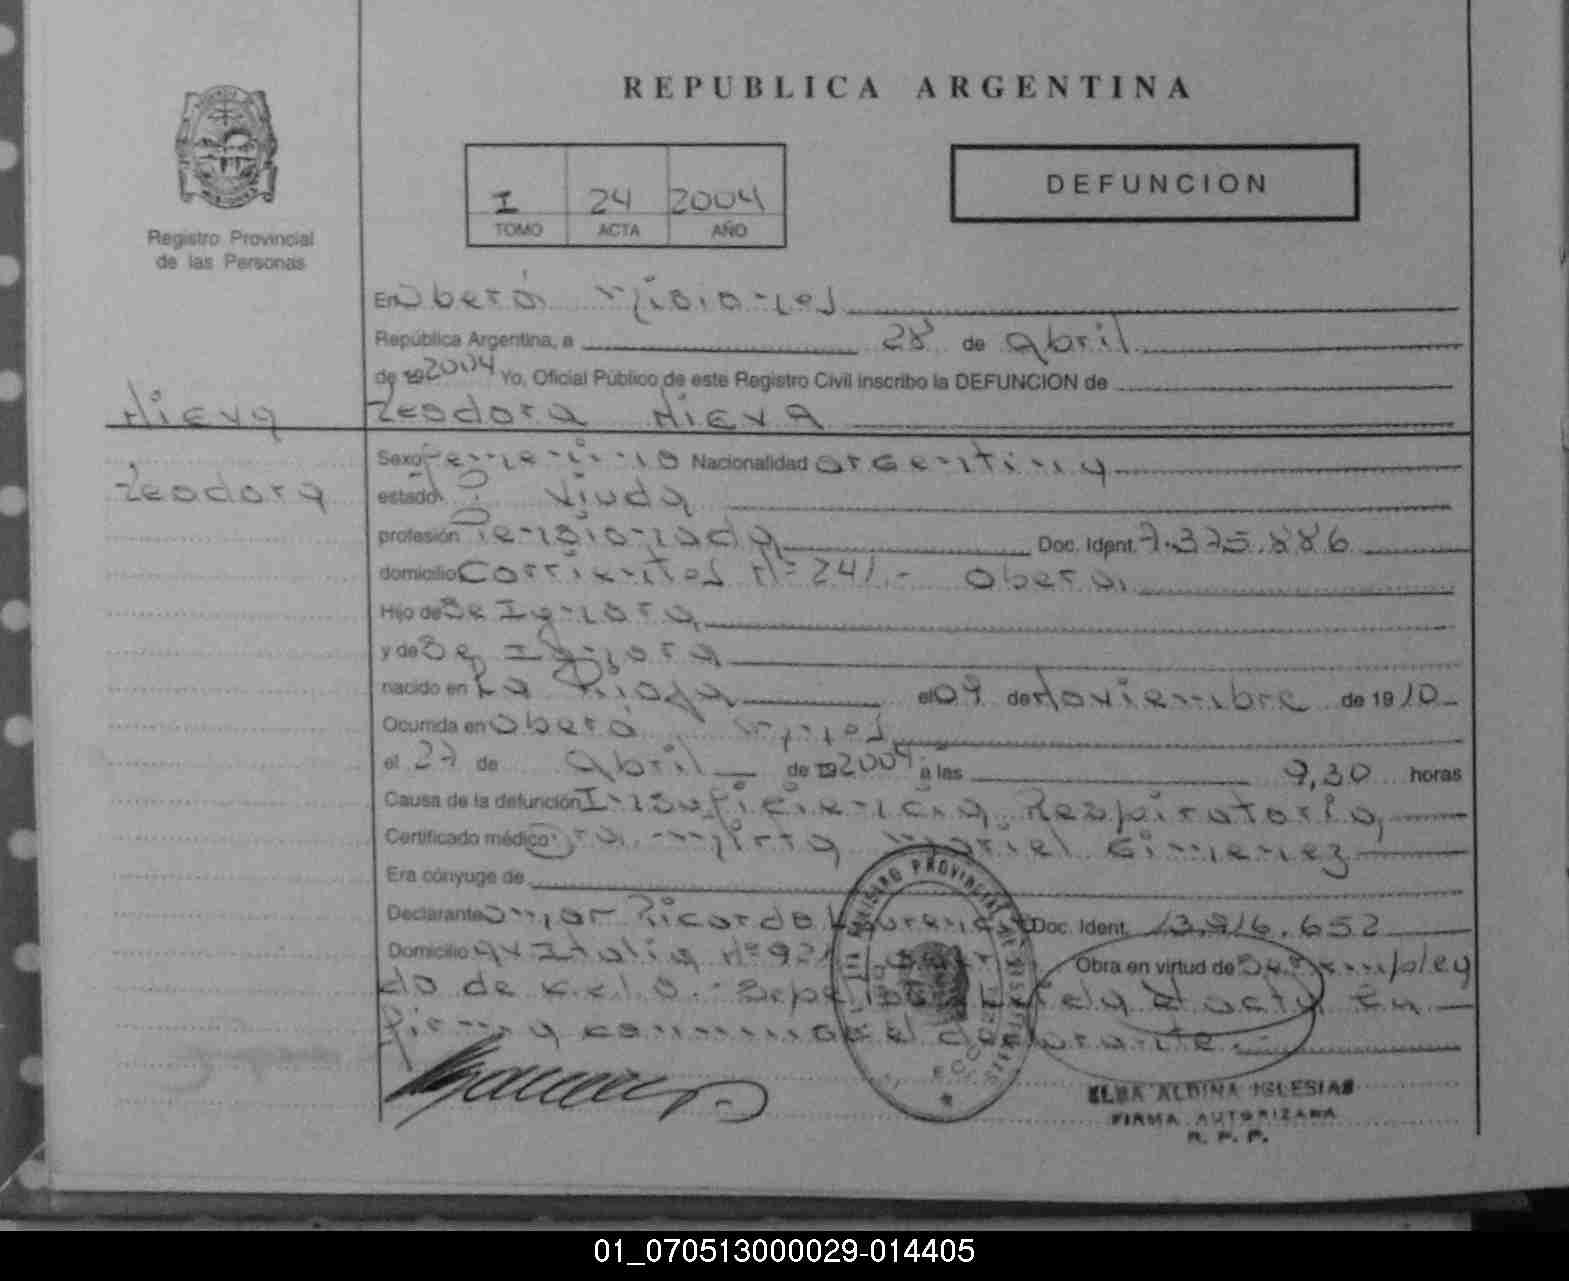 REPUBLICA ARGENTINA
I 24 2004
TOMO ACTA AÑO
DEFUNCION
Registro Provincial
de las Personas
En Oberá Misiones
República Argentina, a 28 de abril
de 19 2004 Yo, Oficial Público de este Registro Civil inscribo la DEFUNCION de
Nieva
Teodora Nieva
Teodora
Sexo Femenino Nacionalidad argentina
estado Viuda
profesión Pensionada Doc. Ident. 7.375.886
domicilio Corrientes Nº 241.- Oberá
Hijo de Se Ignora
y de Se Ignora
nacido en La Rioja el 09 de Noviembre de 1910
Ocurrida en Oberá Mnes
el 27 de abril de 19 2004 a las 9,30 horas
Causa de la defunción Insuficiencia Respiratoria
Certificado médico Dra. Mirta Mariel Gimenez
Era cónyuge de
Declarante Omar Ricardo Doc. Ident. 13.916.652
Domicilio av Italia Nº Obra en virtud de Ser emplea
do de C.E.L.O.- acta En
firma conmigo el declarante.
REGISTRO PROVINCIAL DE LAS PERSONAS
ELBA ALDINA IGLESIAS
FIRMA AUTORIZADA
R. P. P.
01_070513000029-014405